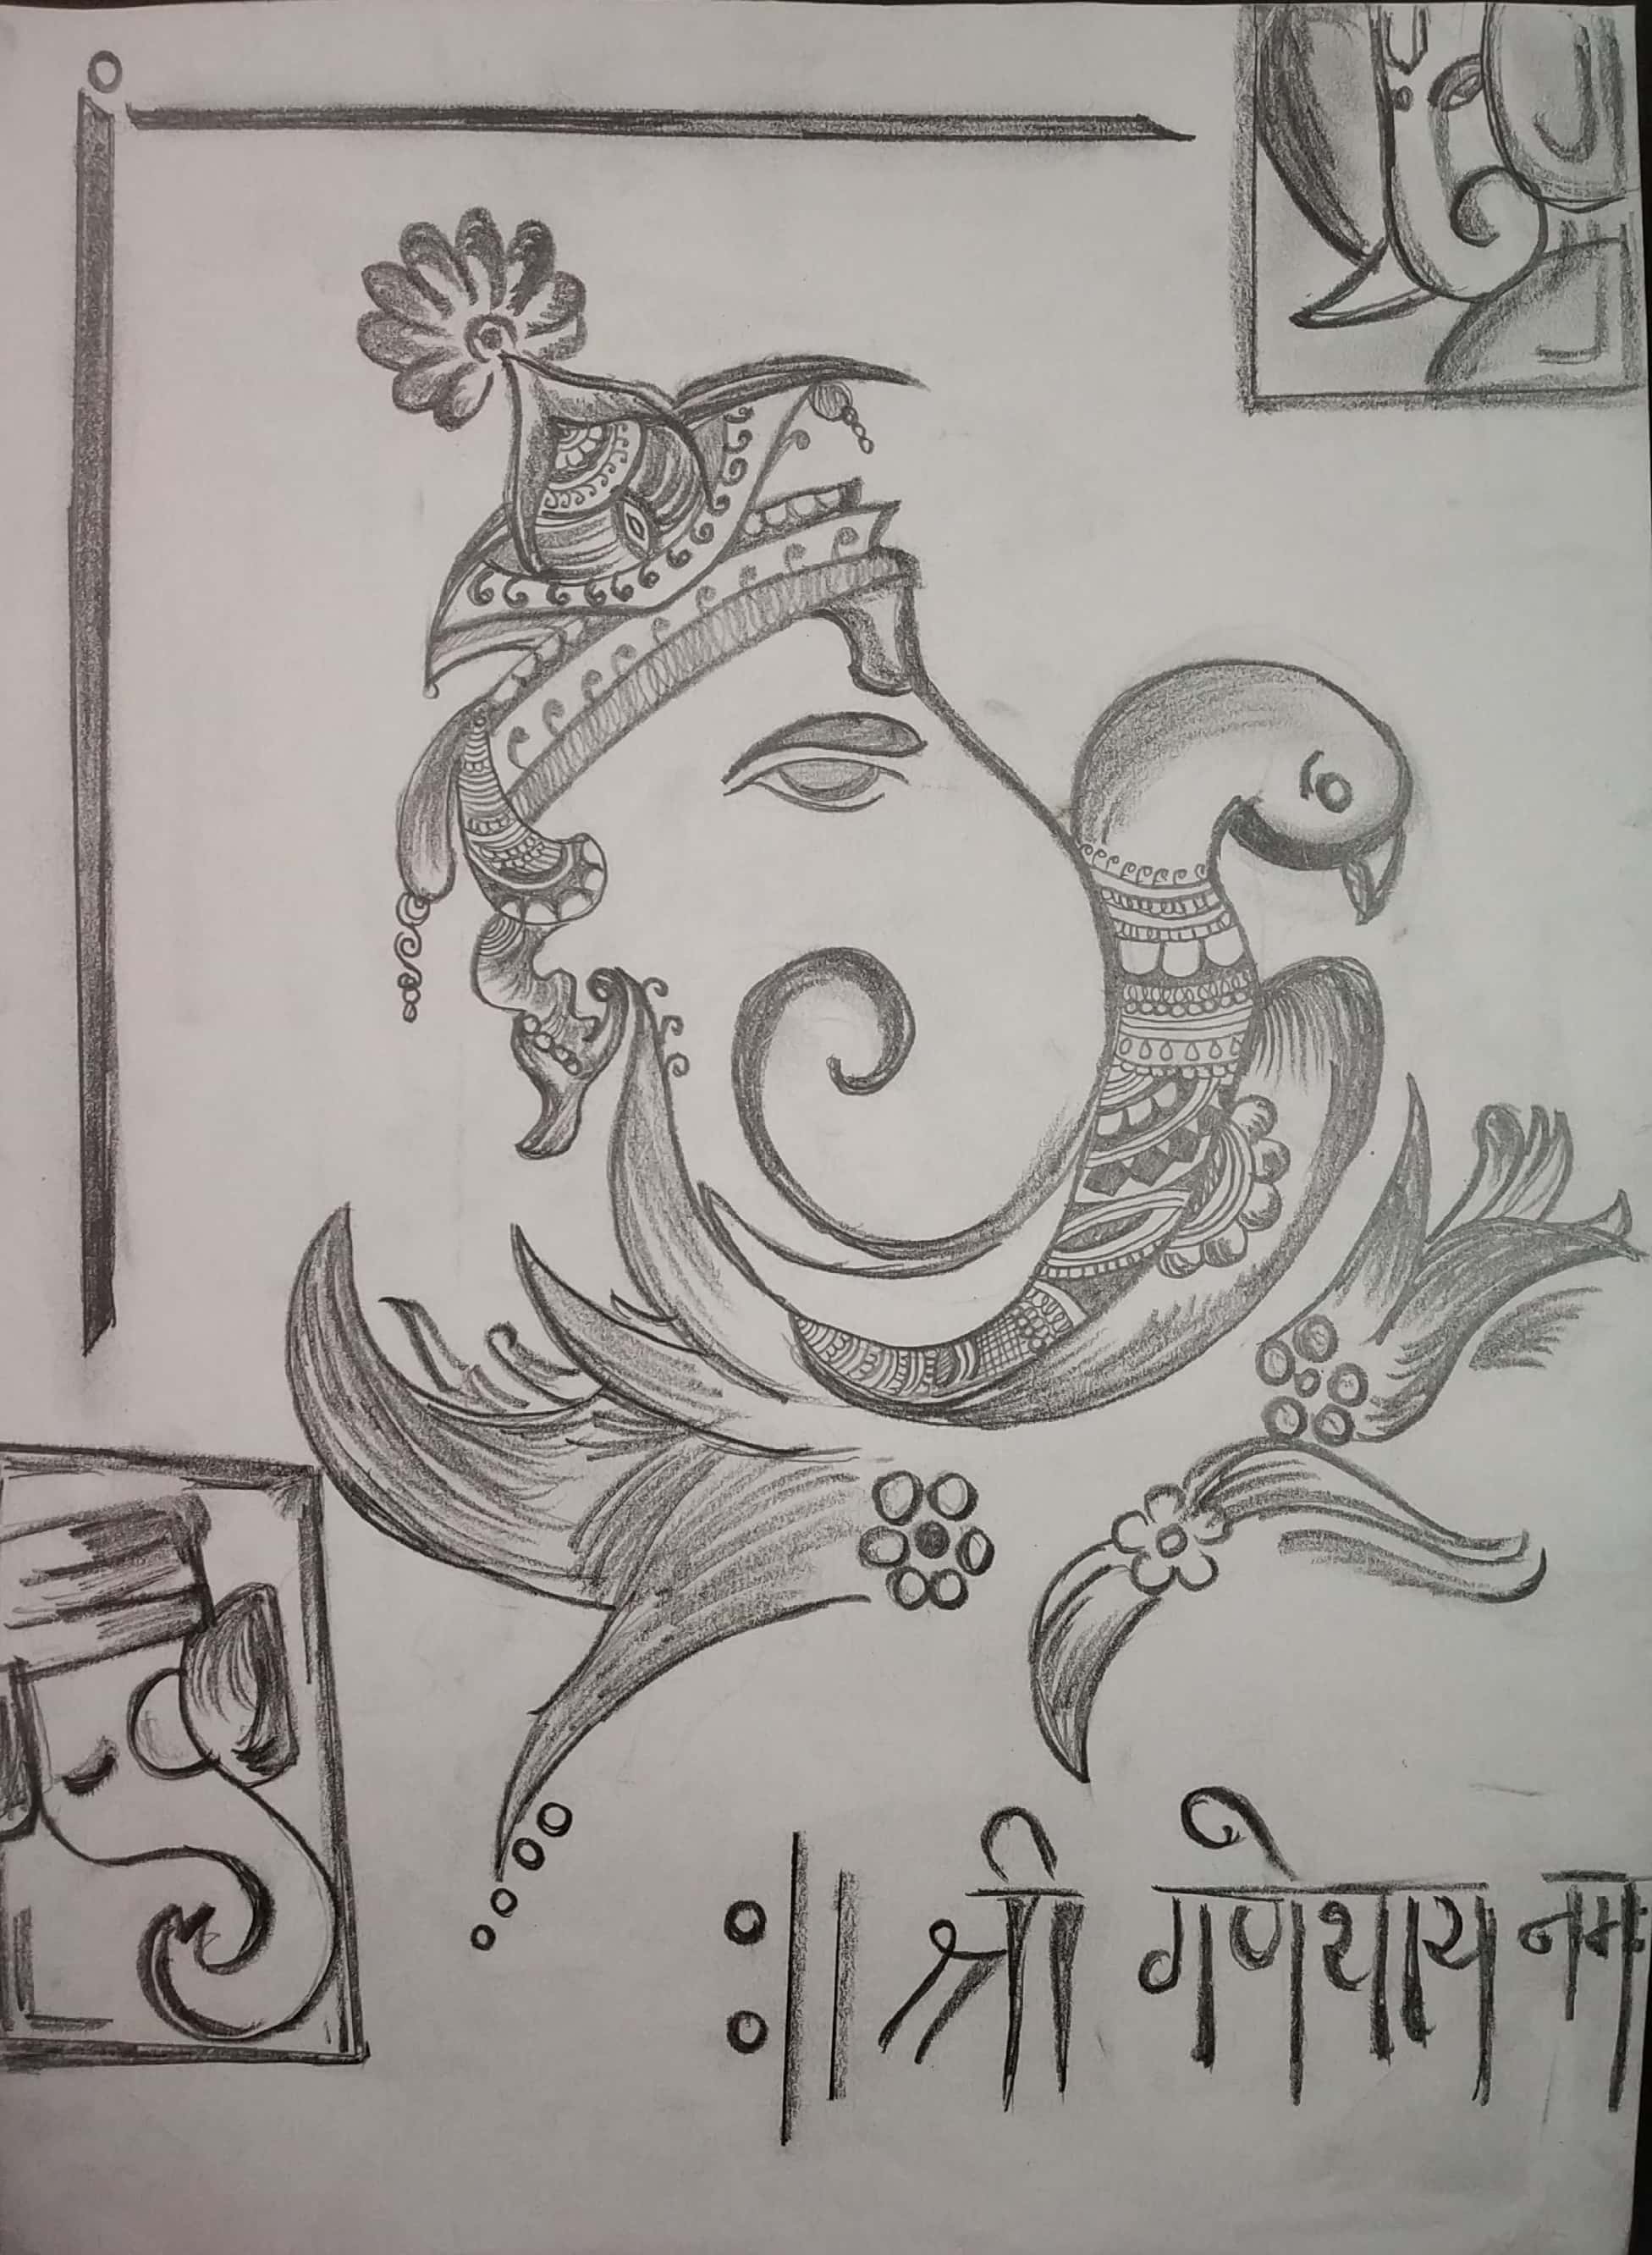 :॥ श्री गणेशाय नमः